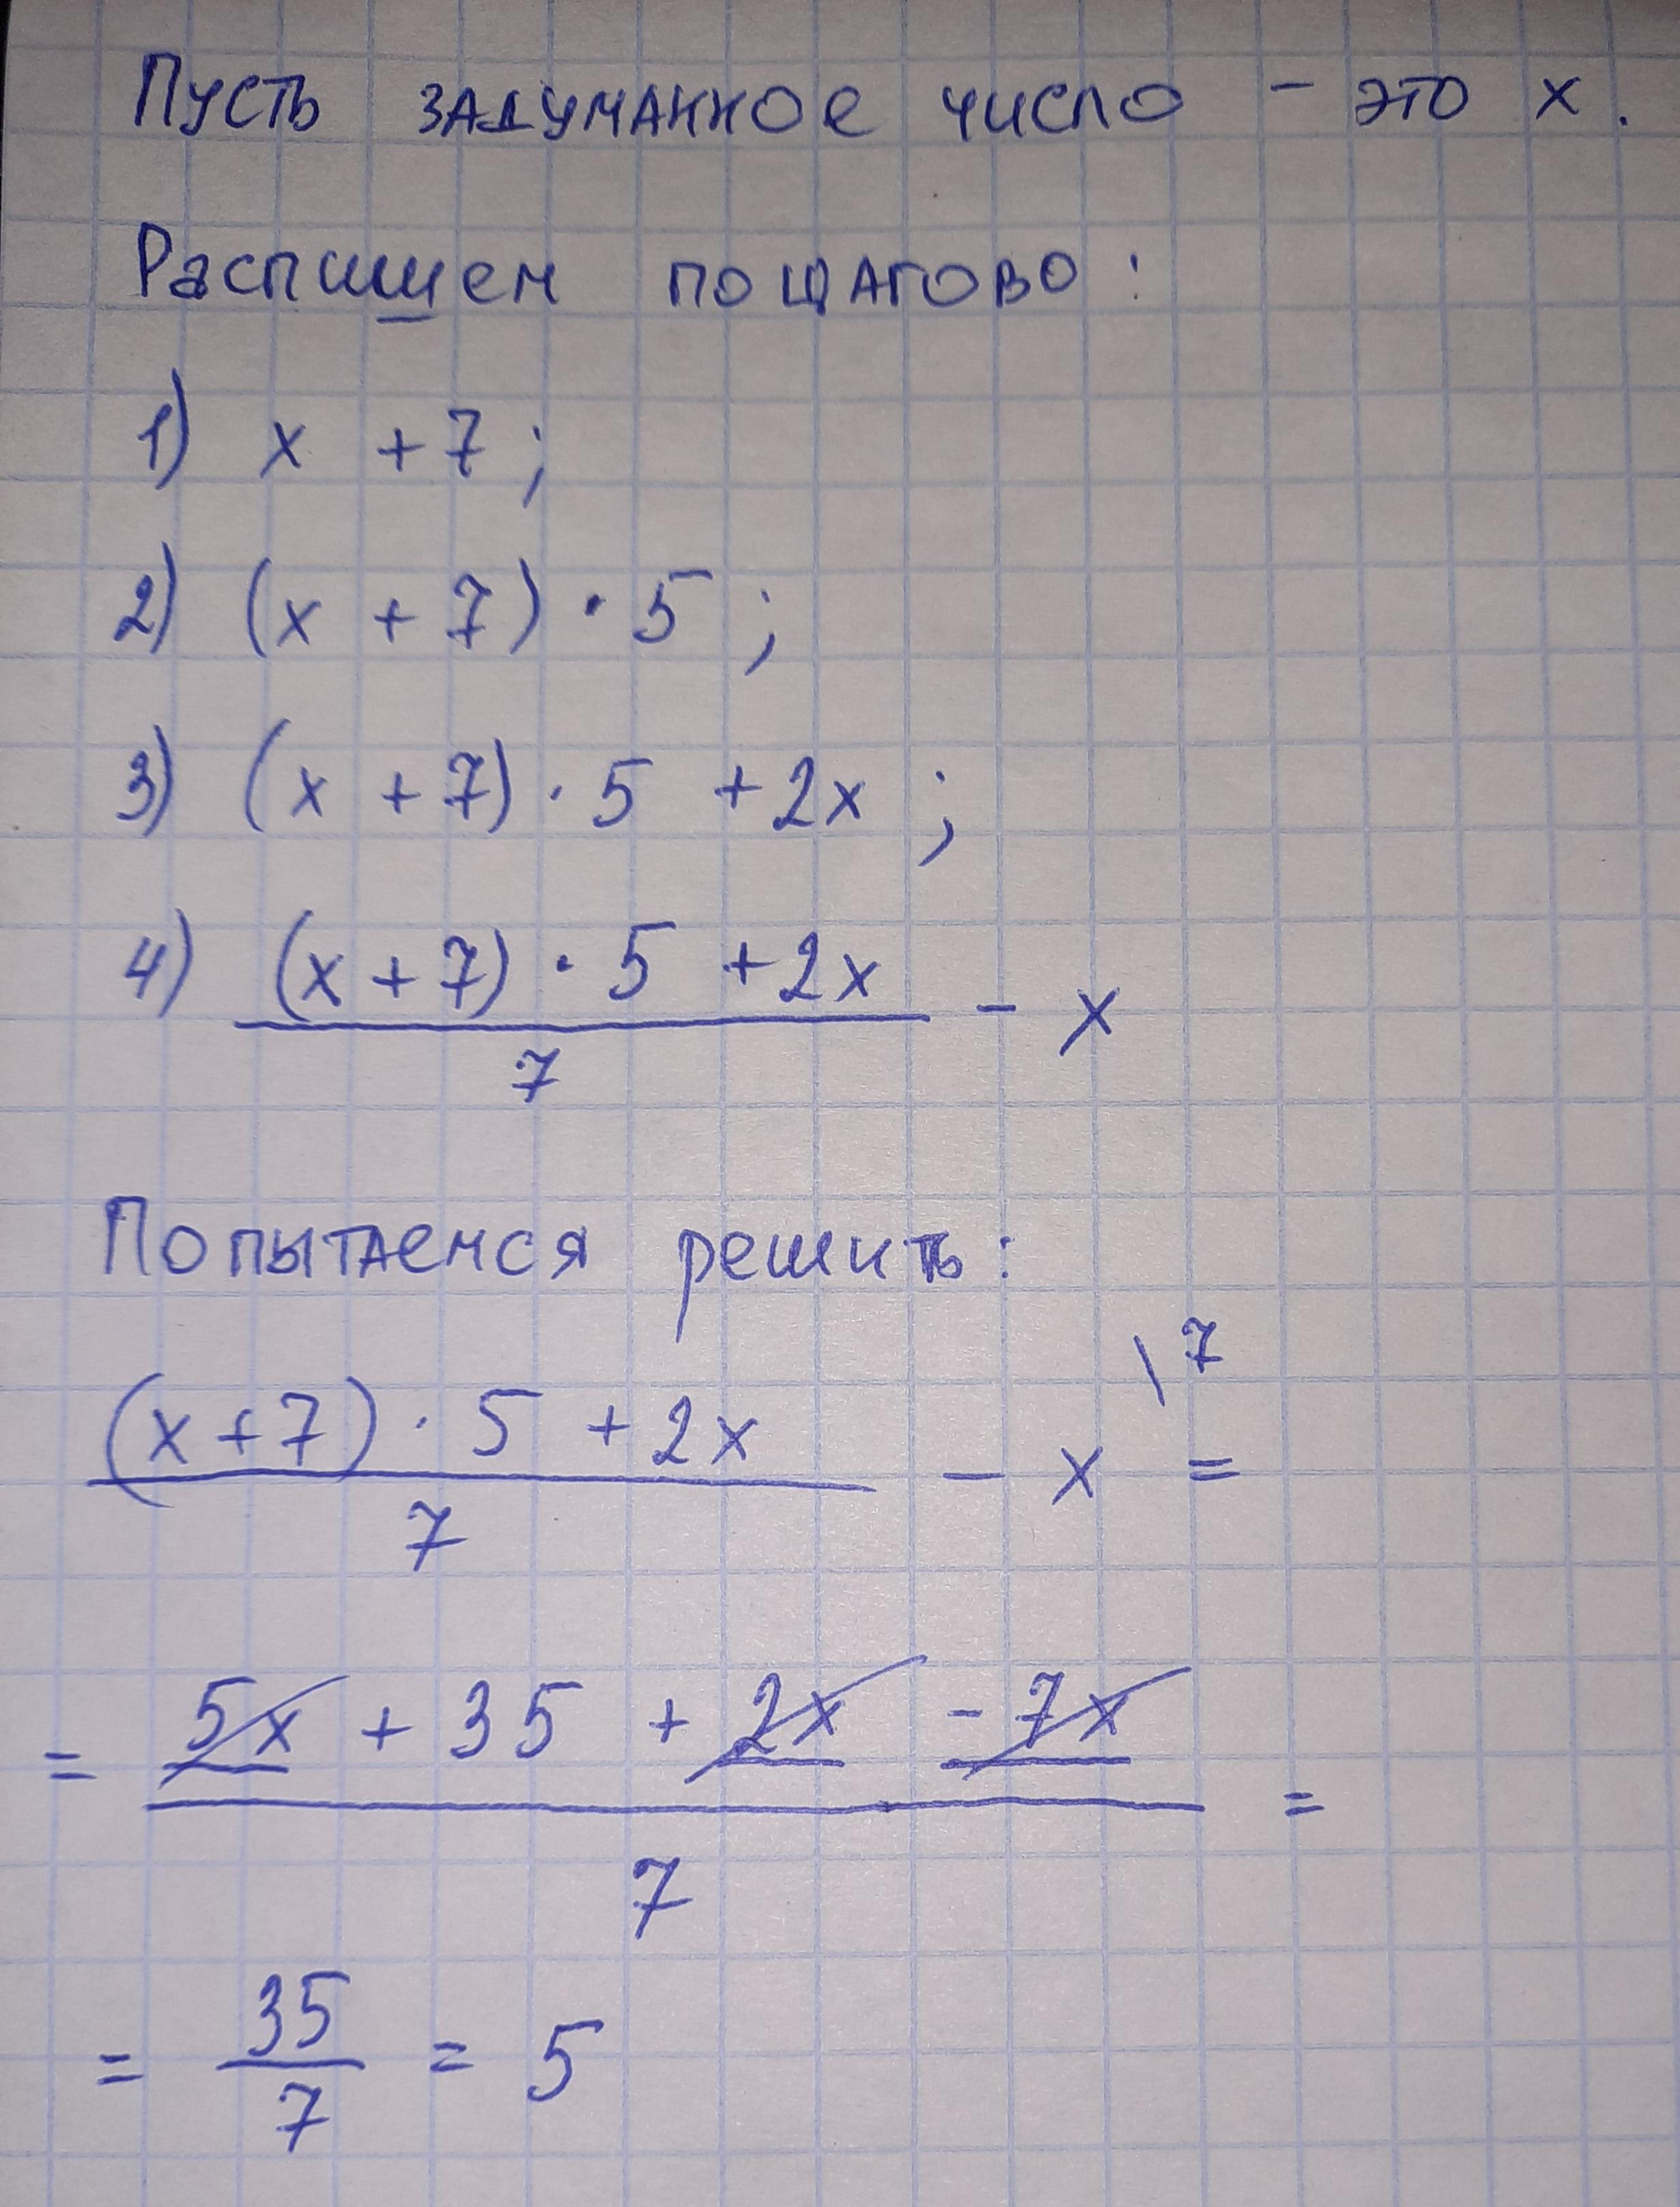 Пусть задуманное число - это x.
Распишем пошагово:
1) x + 7;
2) (x + 7) · 5;
3) (x + 7) · 5 + 2x;
4) (x + 7) · 5 + 2x
- x
7
Попытаемся решить:
\7
(x+7) · 5 + 2x
- x =
7
= 5x + 35 + 2x - 7x =
7
= 35 = 5
7